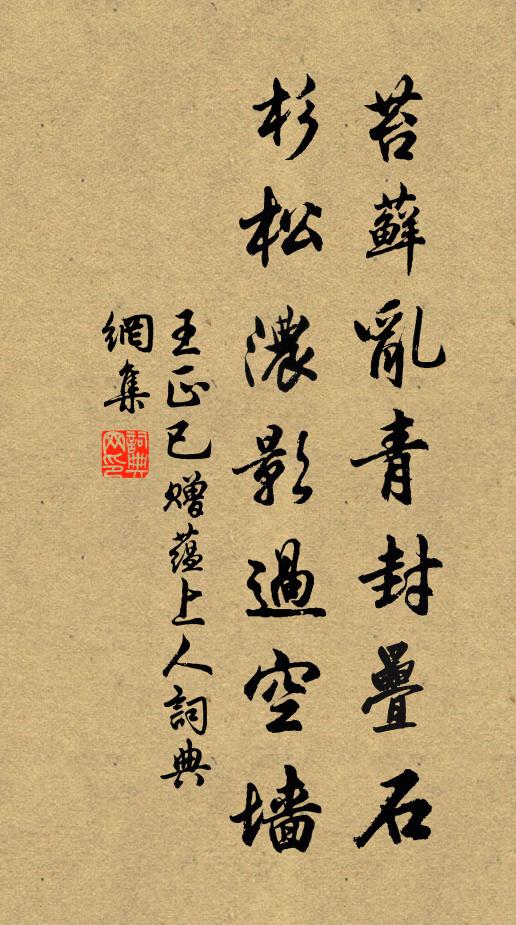 苔蘚亂青封疊石
杉松濃影過空墻
王正己贈蘊上人詞典
網集
詞典
网印